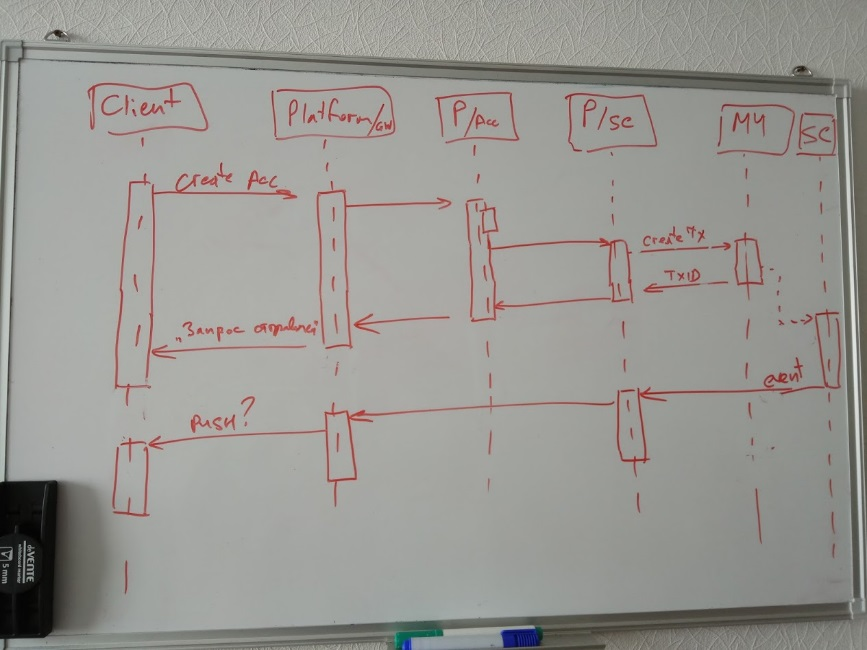 Client
Platform/GW
P/Acc
P/SC
M4
SC
Create Acc
Create Tx
TxID
"Запрос отправлен"
event
PUSH?
deVENTE
whiteboard marker
5 mm